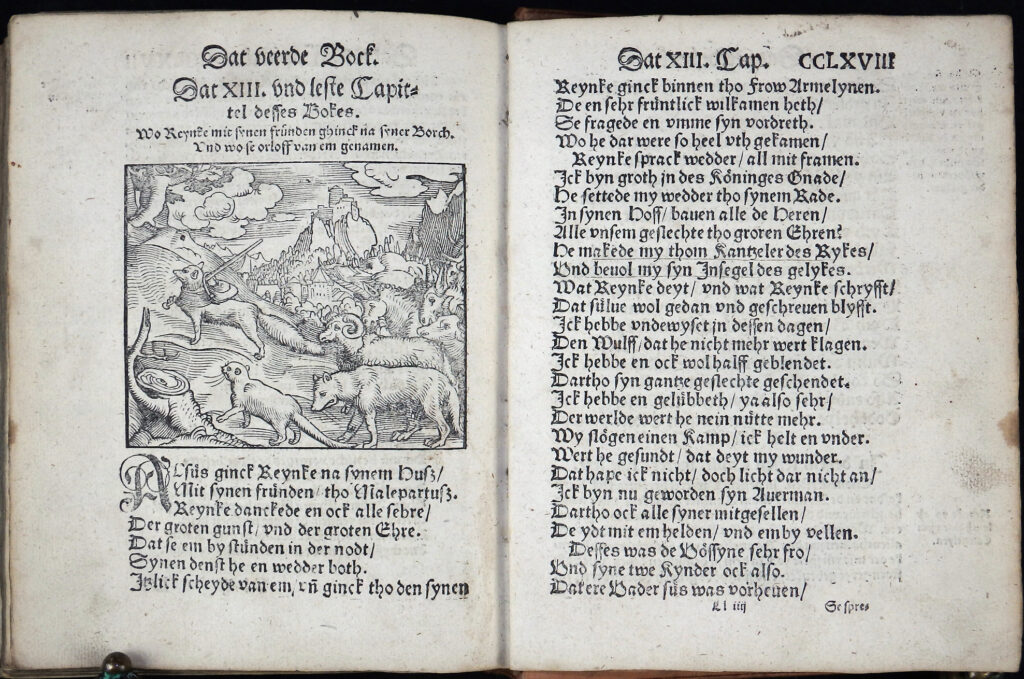 Dat veerde Bock.
Dat XIII. vnd leste Capit-
tel desses Bokes.
Wo Reynke mit synen fründen ghinck na syner Borch.
Vnd wo se orloff van em genamen.
ALsüs ginck Reynke na synem Husz/
Mit synen fründen/ tho Malepartusz.
Reynke danckede en ock alle sehre/
Der groten gunst/ vnd der groten Ehre.
Dat se em by stünden in der nodt/
Synen denst he en wedder both.
Itzlick scheyde van em, vñ ginck tho den synen
Dat XIII. Cap. CCLXVIII
Reynke ginck binnen tho Frow Armelynen.
De en sehr früntlick wilkamen heth/
Se fragede en vmme syn vordreth.
Wo he dar were so heel vth gekamen/
Reynke sprack wedder/ all mit framen.
Ick byn groth in des Köninges Gnade/
He settede my wedder tho synem Rade.
In synen Hoff/ bauen alle de Heren/
Alle vnsem geslechte tho groten Ehren?
He makede my thom Kantzeler des Rykes/
Vnd beuol my syn Insegel des gelykes.
Wat Reynke deyt/ vnd wat Reynke schryfft/
Dat sülue wol gedan vnd geschreuen blyfft.
Ick hebbe vndewyset in dessen dagen/
Den Wulff/ dat he nicht mehr wert klagen.
Ick hebbe en ock wol halff geblendet.
Dartho syn gantze geslechte geschendet.
Ick hebbe en gelübbeth/ ya also sehr/
Der werlde wert he nein nütte mehr.
Wy slögen einen Kamp/ ick helt en vnder.
Wert he gesundt/ dat deyt my wunder.
Dat hape ick nicht/ doch licht dar nicht an/
Ick byn nu geworden syn Auerman.
Dartho ock alle syner mitgesellen/
De ydt mit em helden/ vnd em by vellen.
Desses was de Vössyne sehr fro/
Vnd syne twe Kynder ock also.
Dat ere Vader süs was vorheuen/
Ll iiij
Se spre-